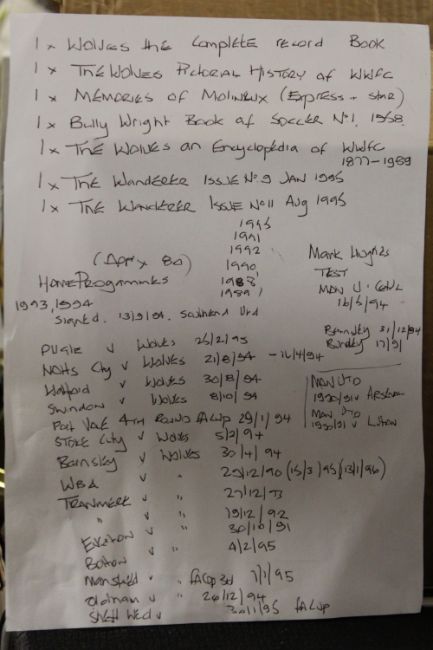 1 x Wolves the Complete record Book
1 x The Wolves Pictorial History of WWFC
1 x Memories of Molineux (Express + Star)
1 x Billy Wright Book of Soccer No 1. 1958.
1 x The Wolves an Encyclopedia of WWFC
1877-1989
1 x The Wanderer Issue No 9 Jan 1995
1 x The Wanderer Issue No 11 Aug 1995
1995
1991
(Approx 80) 1992
Home Programmes 1990,
1988
1993, 1994 1989,
Signed. 13/9/94. Southend Utd
Mark Hughes
TEST
Man U v
16/5/94
Barnsley 31/12/94
Burnley
MAN UTD
1990/91 v Arsenal
MAN UTD
1990/91 v Luton
v Wolves 26/2/95
Notts City v Wolves 21/8/94 - 16/4/94
Watford v Wolves 30/8/94
Swindon v Wolves 8/10/94
Port Vale 4th Round FA Cup 29/1/94
Stoke City v Wolves 5/2/94
Barnsley v Wolves 30/4/94
WBA v " (15/3/95)
Tranmere v " 27/12/93
" v " 19/12/92
Everton v " 30/10/91
Bolton v " 4/2/95
Mansfield v " FA Cup 3rd 7/1/95
Oldham v " 26/12/94
Sheff Wed v 30/1/95 FA Cup